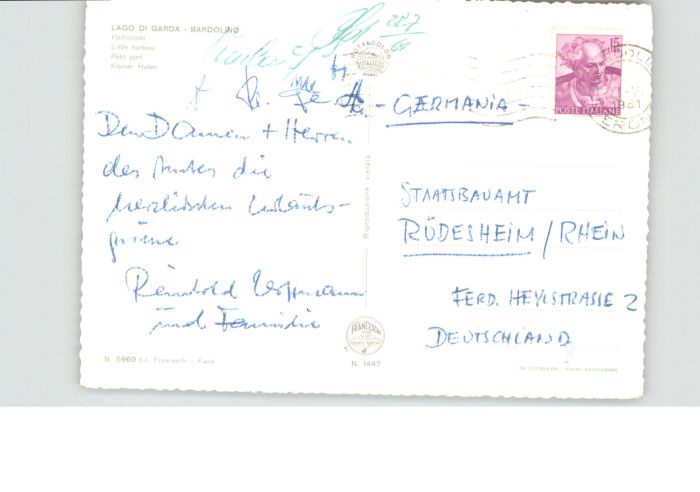 LAGO DI GARDA - BARDOLINO
Porticciolo
Little harbour
Petit port
Kleiner Hafen
28.7
Den Damen + Herren
des Amtes die
herzlichsten Urlaubs-
grüsse
Reinhold Hoffmann
und Familie
N. 5969 Ed. Franceschi -
N. 1447
Riproduzione vietata
ROTALCOLOR
FRANCESCHI
15
POSTE ITALIANE
1961
- GERMANIA -
STAATSBAUAMT
RÜDESHEIM / RHEIN
FERD. HEYLSTRASSE 2
DEUTSCHLAND